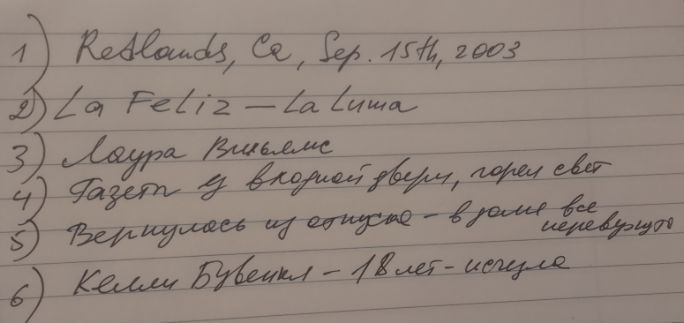 1) Redlands, Ca, Sep. 15th, 2003
2) La Feliz – La Luna
3) Лаура Вильямс
4) Газеты у входной двери, горел свет
5) Вернулась из отпуска – в доме все
перевернуто
6) Келли Бувенкл – 18 лет – исчезла